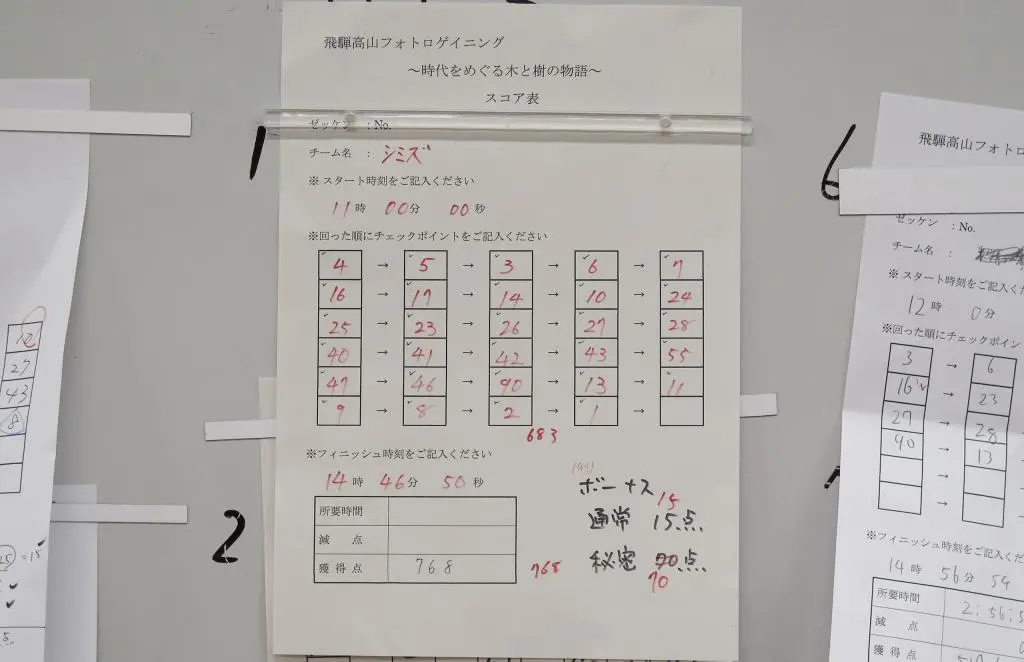 飛騨高山フォトロゲイニング
～時代をめぐる木と樹の物語～
スコア表
ゼッケン ：No.
1
チーム名 ： シミズ
※ スタート時刻をご記入ください
11時 00分 00秒
※回った順にチェックポイントをご記入ください
4 → 5 → 3 → 6 → 7
16 → 17 → 14 → 10 → 24
25 → 23 → 26 → 27 → 28
40 → 41 → 42 → 43 → 55
47 → 46 → 90 → 13 → 11
9 → 8 → 2 → 1 →
683
※フィニッシュ時刻をご記入ください
14時 46分 50秒
ボーナス
15
通常 15点
秘密 90点
70
所要時間
減 点
獲得点 768
768
2
12
27
43
8
25 = 15
6
飛騨高山フォトロ
ゼッケン ：No.
チーム名 ：
※ スタート時刻をご記入くださ
12時 0分
※回った順にチェックポイン
3 → 6
16 → 23
27 → 28
90 → 13
→
→
※フィニッシュ時刻をご記入くださ
14時 56分 54
所要時間 2:56:5
減 点
獲得点